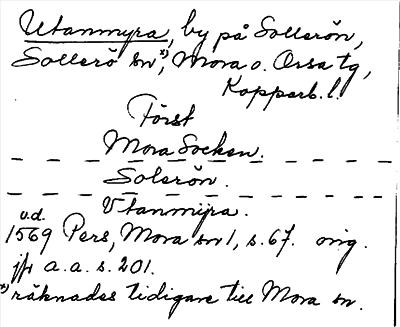 Utanmyra, by på Sollerön,
Sollerö sn x), Mora o. Orsa tg,
Kopparb. l.
Först
Mora Socken.
Solerön.
Vtanmyra.
u.d.
1569 Pers, Mora sn 1, s. 67. orig.
jfr a.a. s. 201.
x) räknades tidigare till Mora sn.